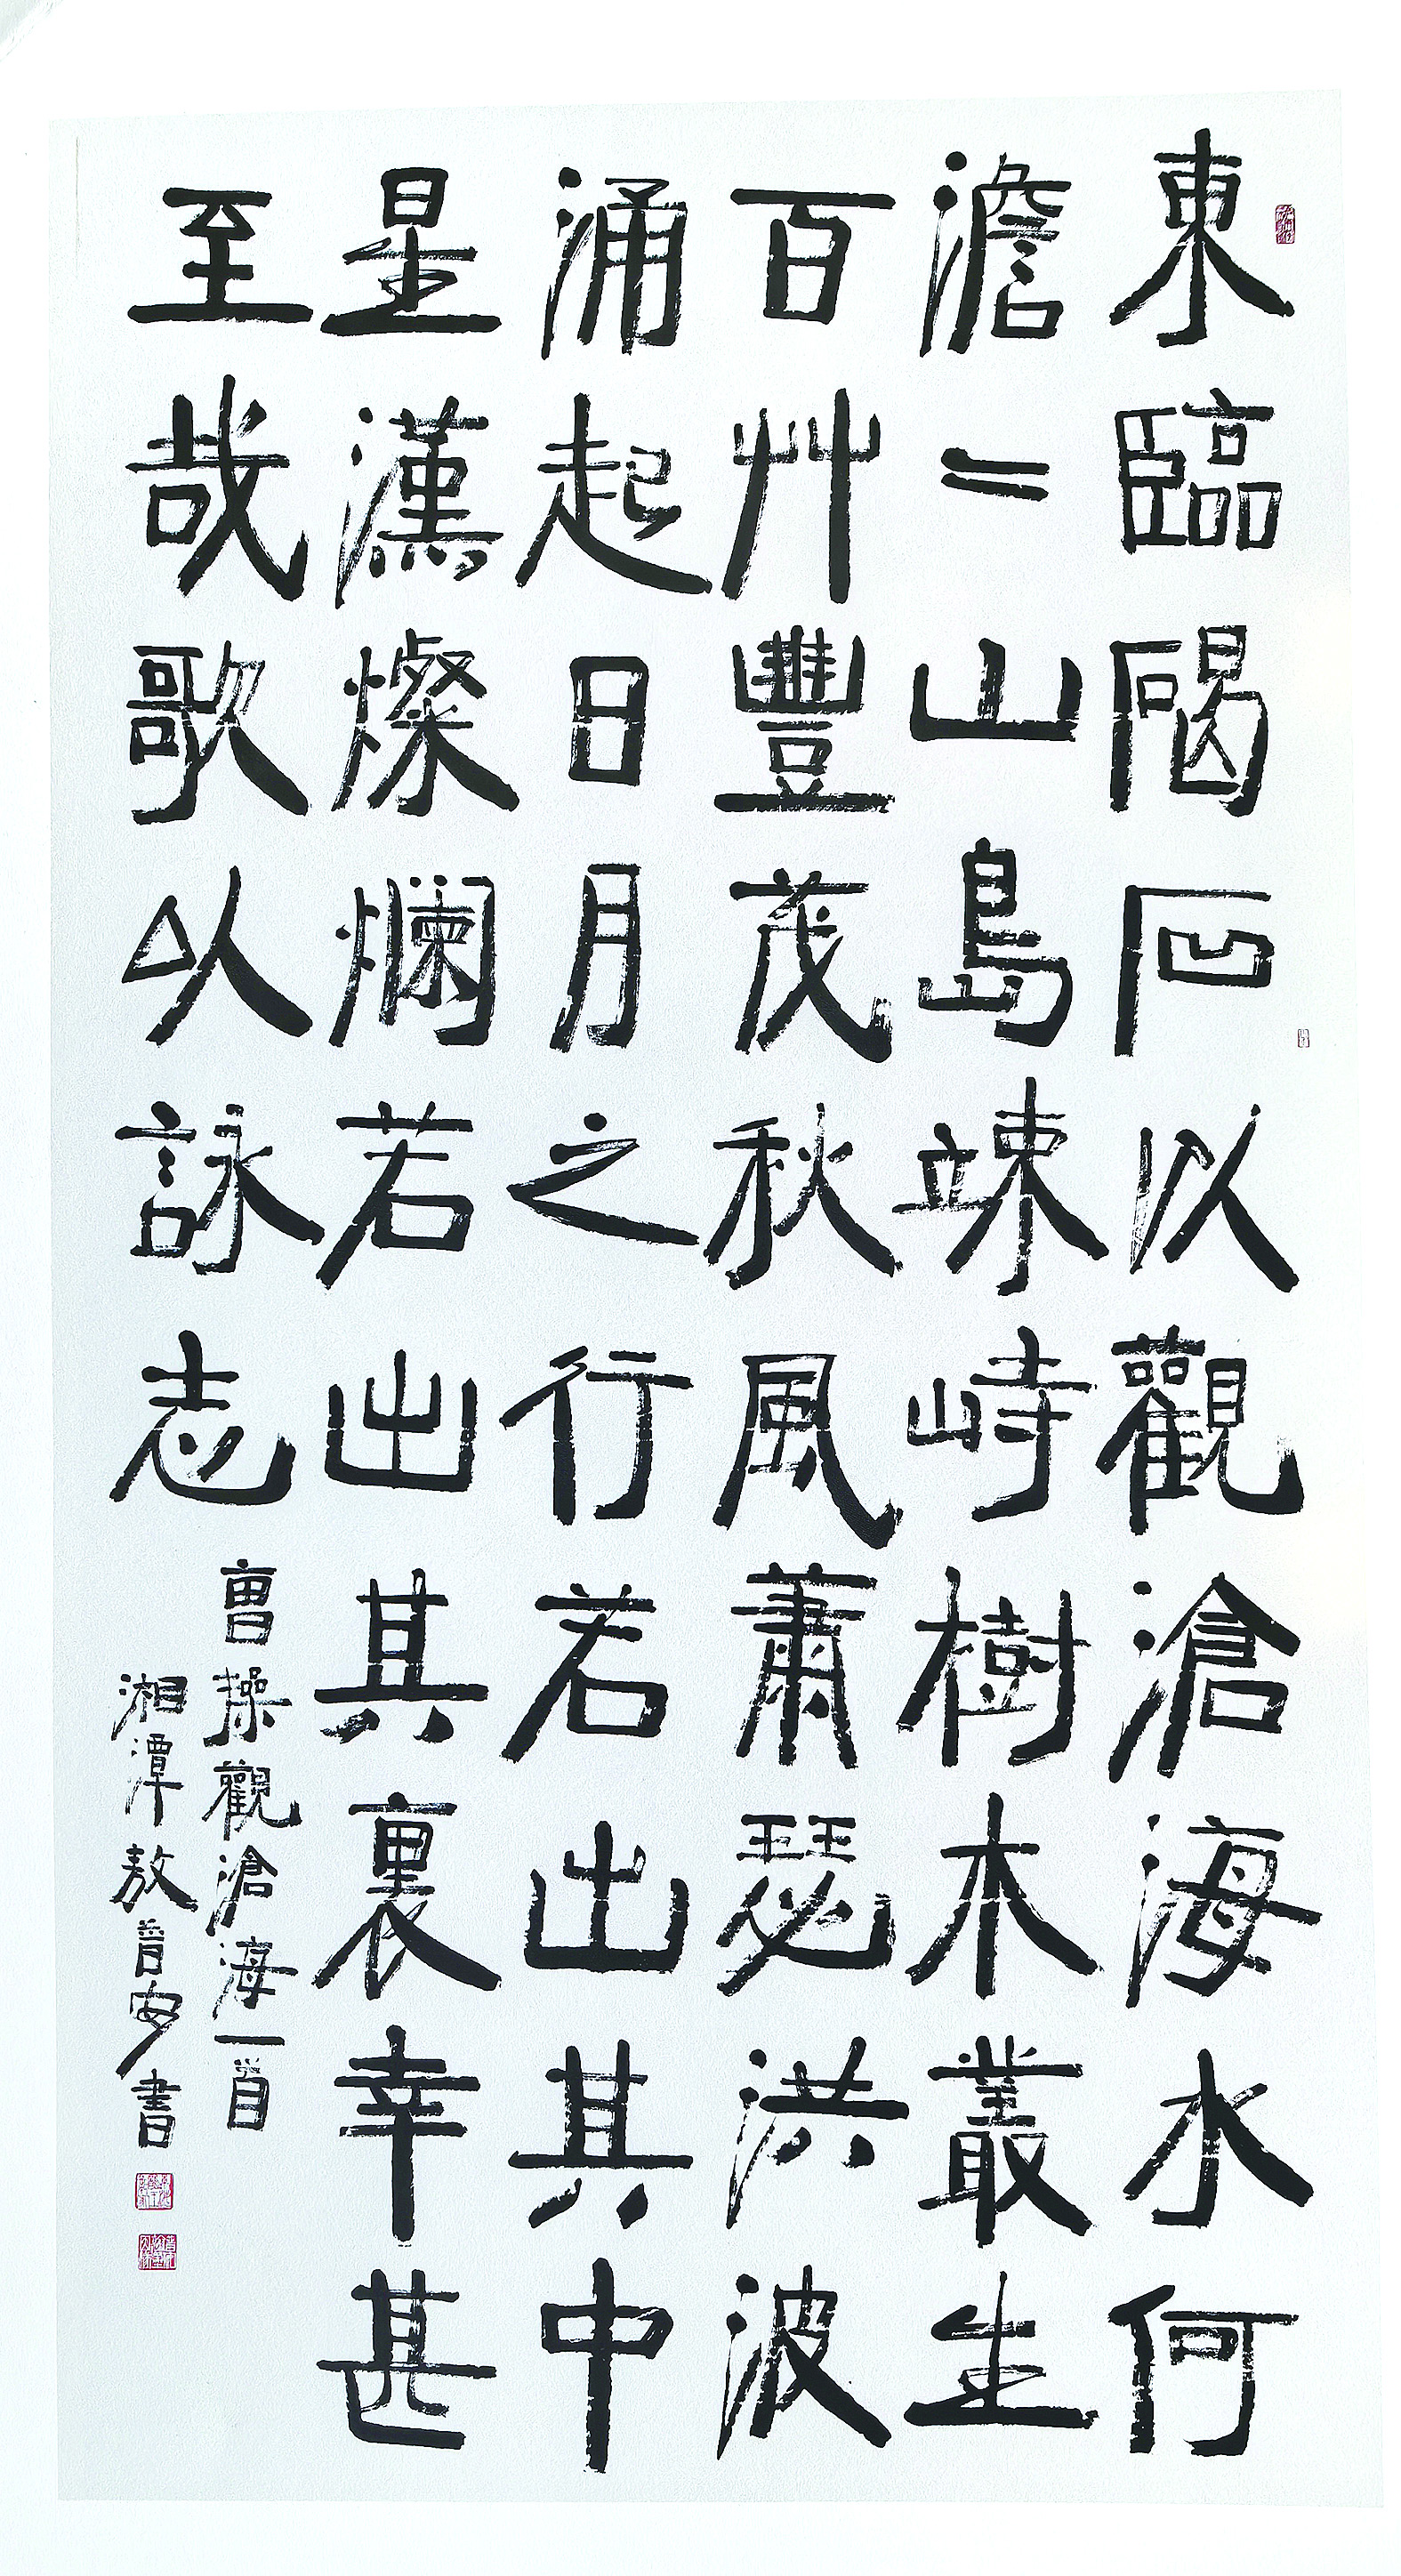 東臨碣石以觀滄海水何
澹〻山島竦峙樹木叢生
百艸豐茂秋風蕭瑟洪波
涌起日月之行若出其中
星漢燦爛若出其裏幸甚
至哉歌以詠志
曹操觀滄海一首
湘潭敖普安書